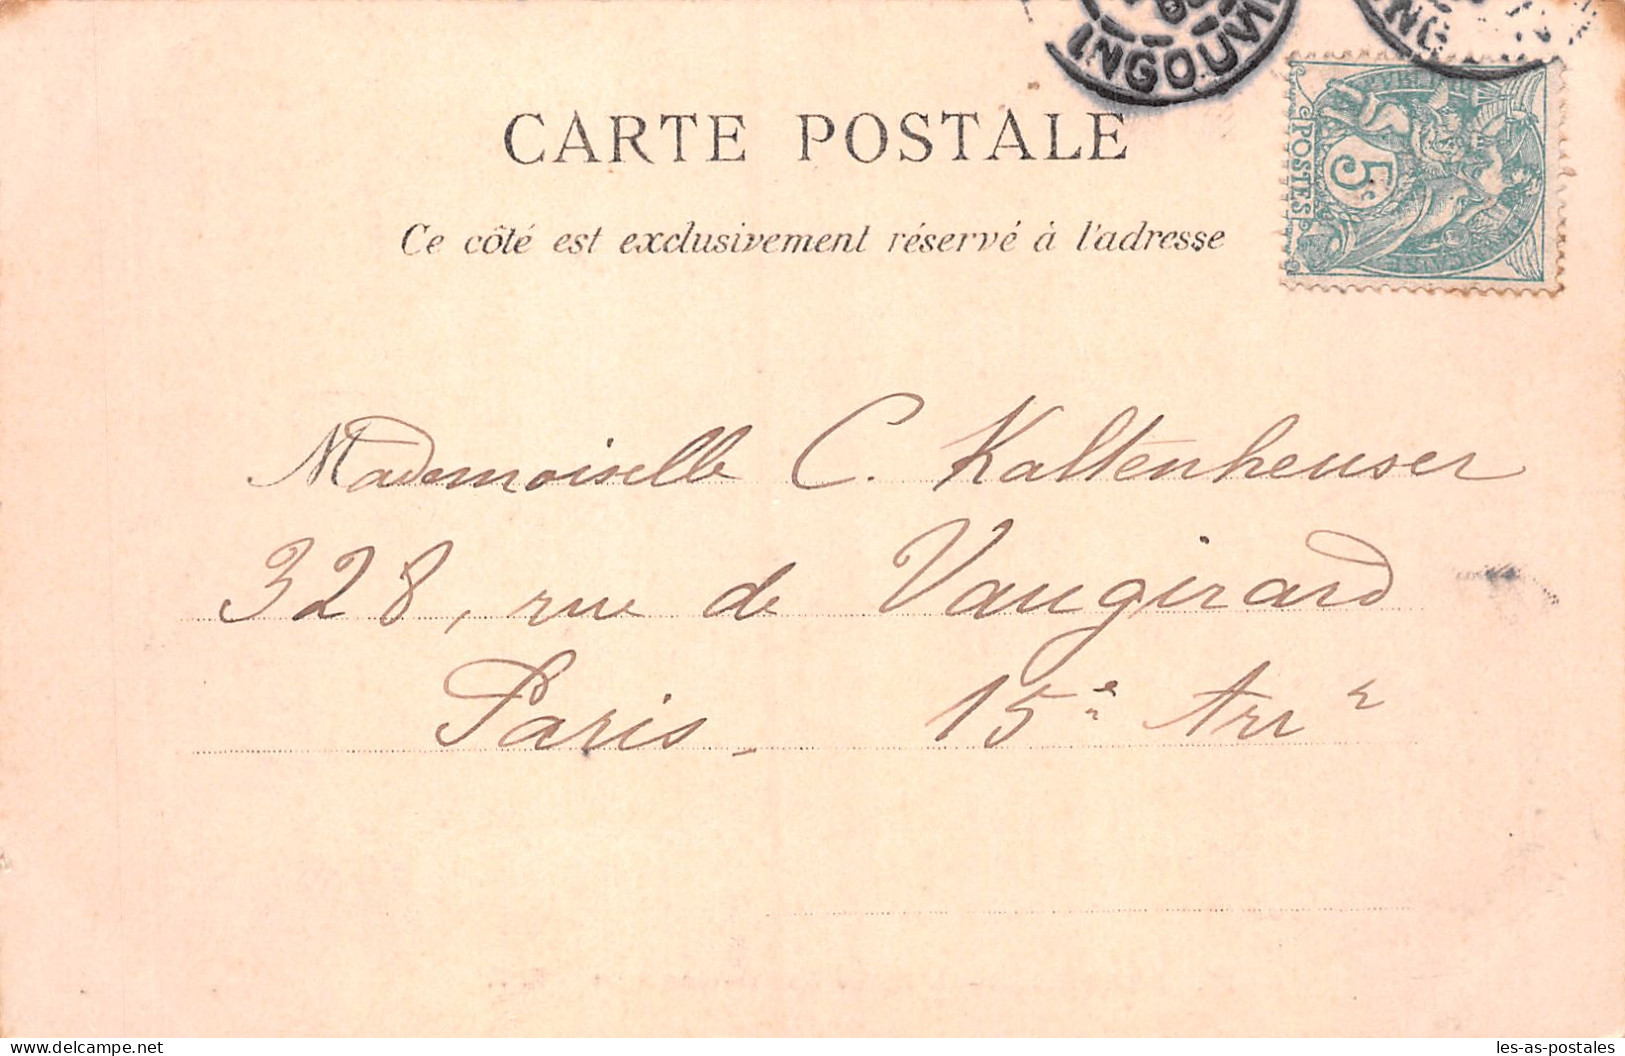 INGOUVI
ING
CARTE POSTALE
Ce côté est exclusivement réservé à l'adresse
POSTES
5c
Mademoiselle C. Kaltenheuser
328, rue de Vaugirard
Paris - 15e Arrt
delcampe.net
les-as-postales